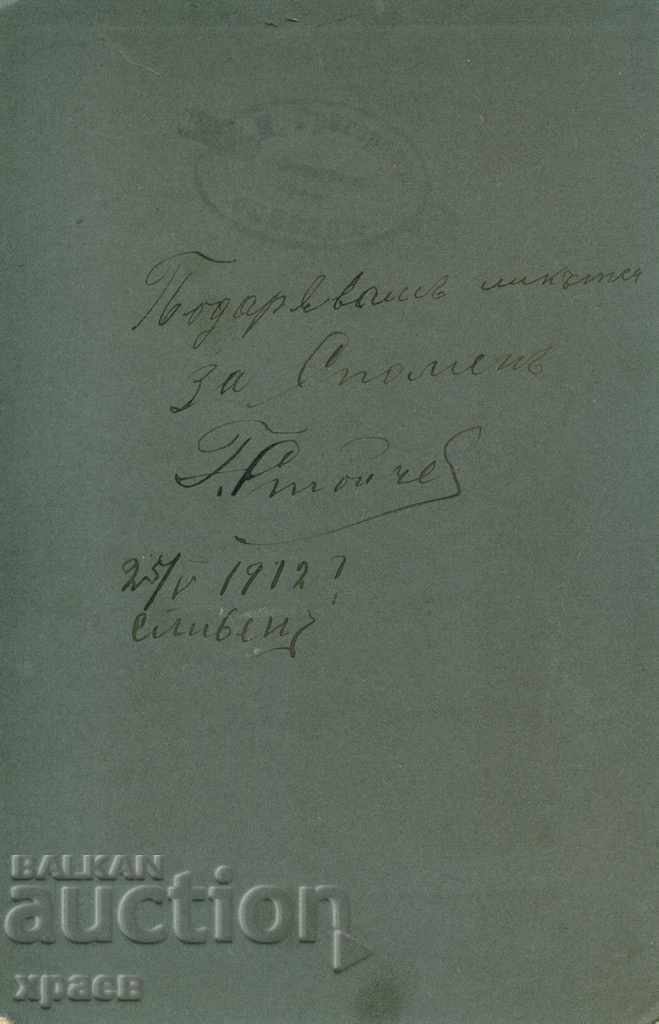 Подарявамъ ликътъ
за Споменъ
Г. Стойчев
25/V 1912 г
Сливенъ
BALKAN
auction
храев